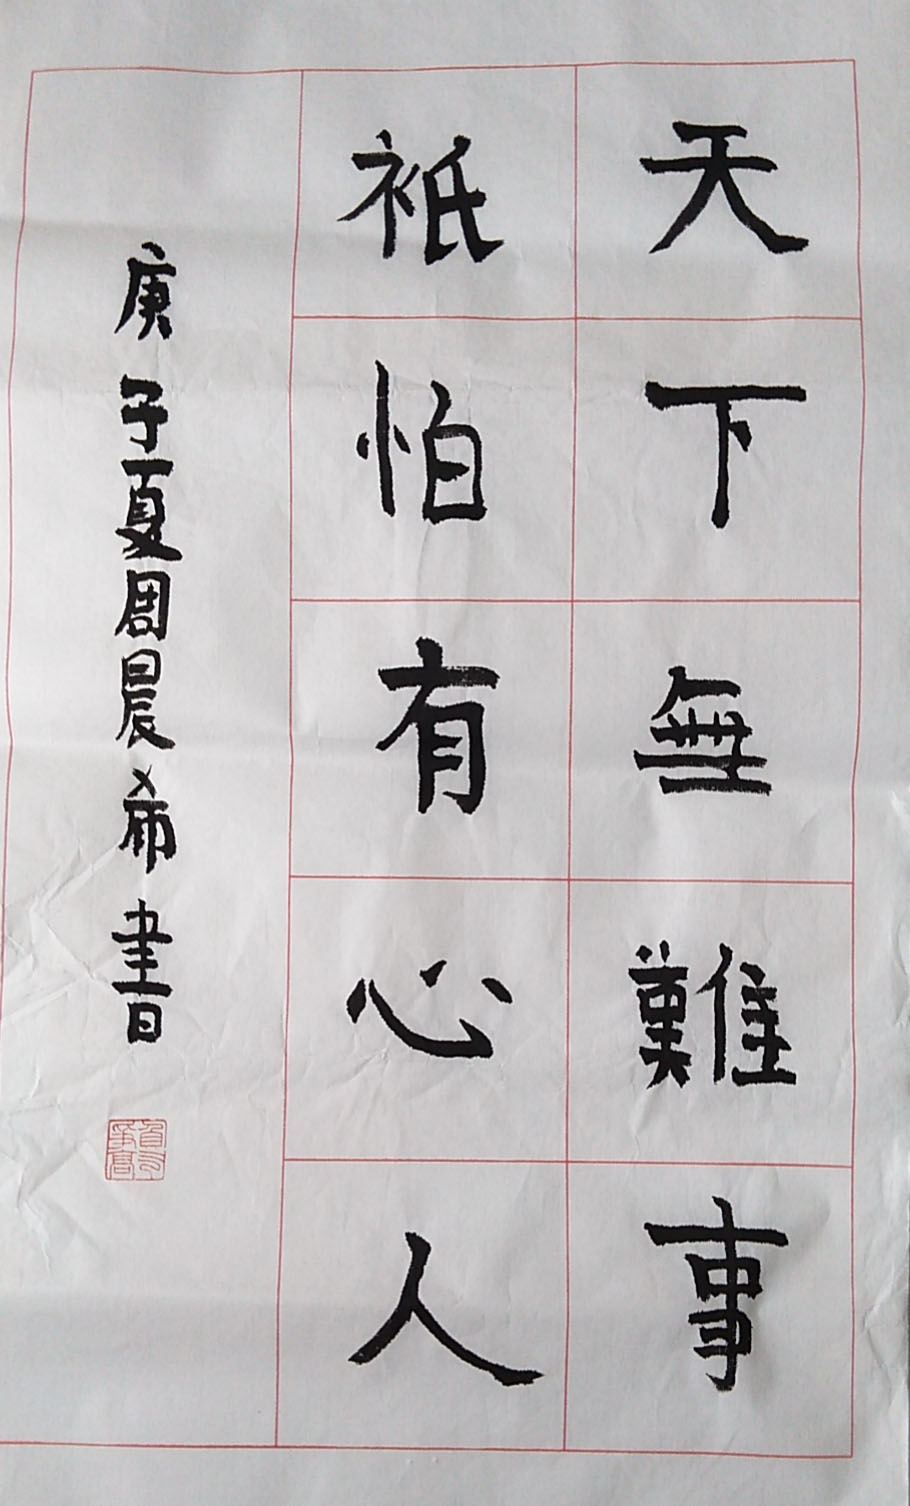 天下無難事
祇怕有心人
庚子夏周晨希書